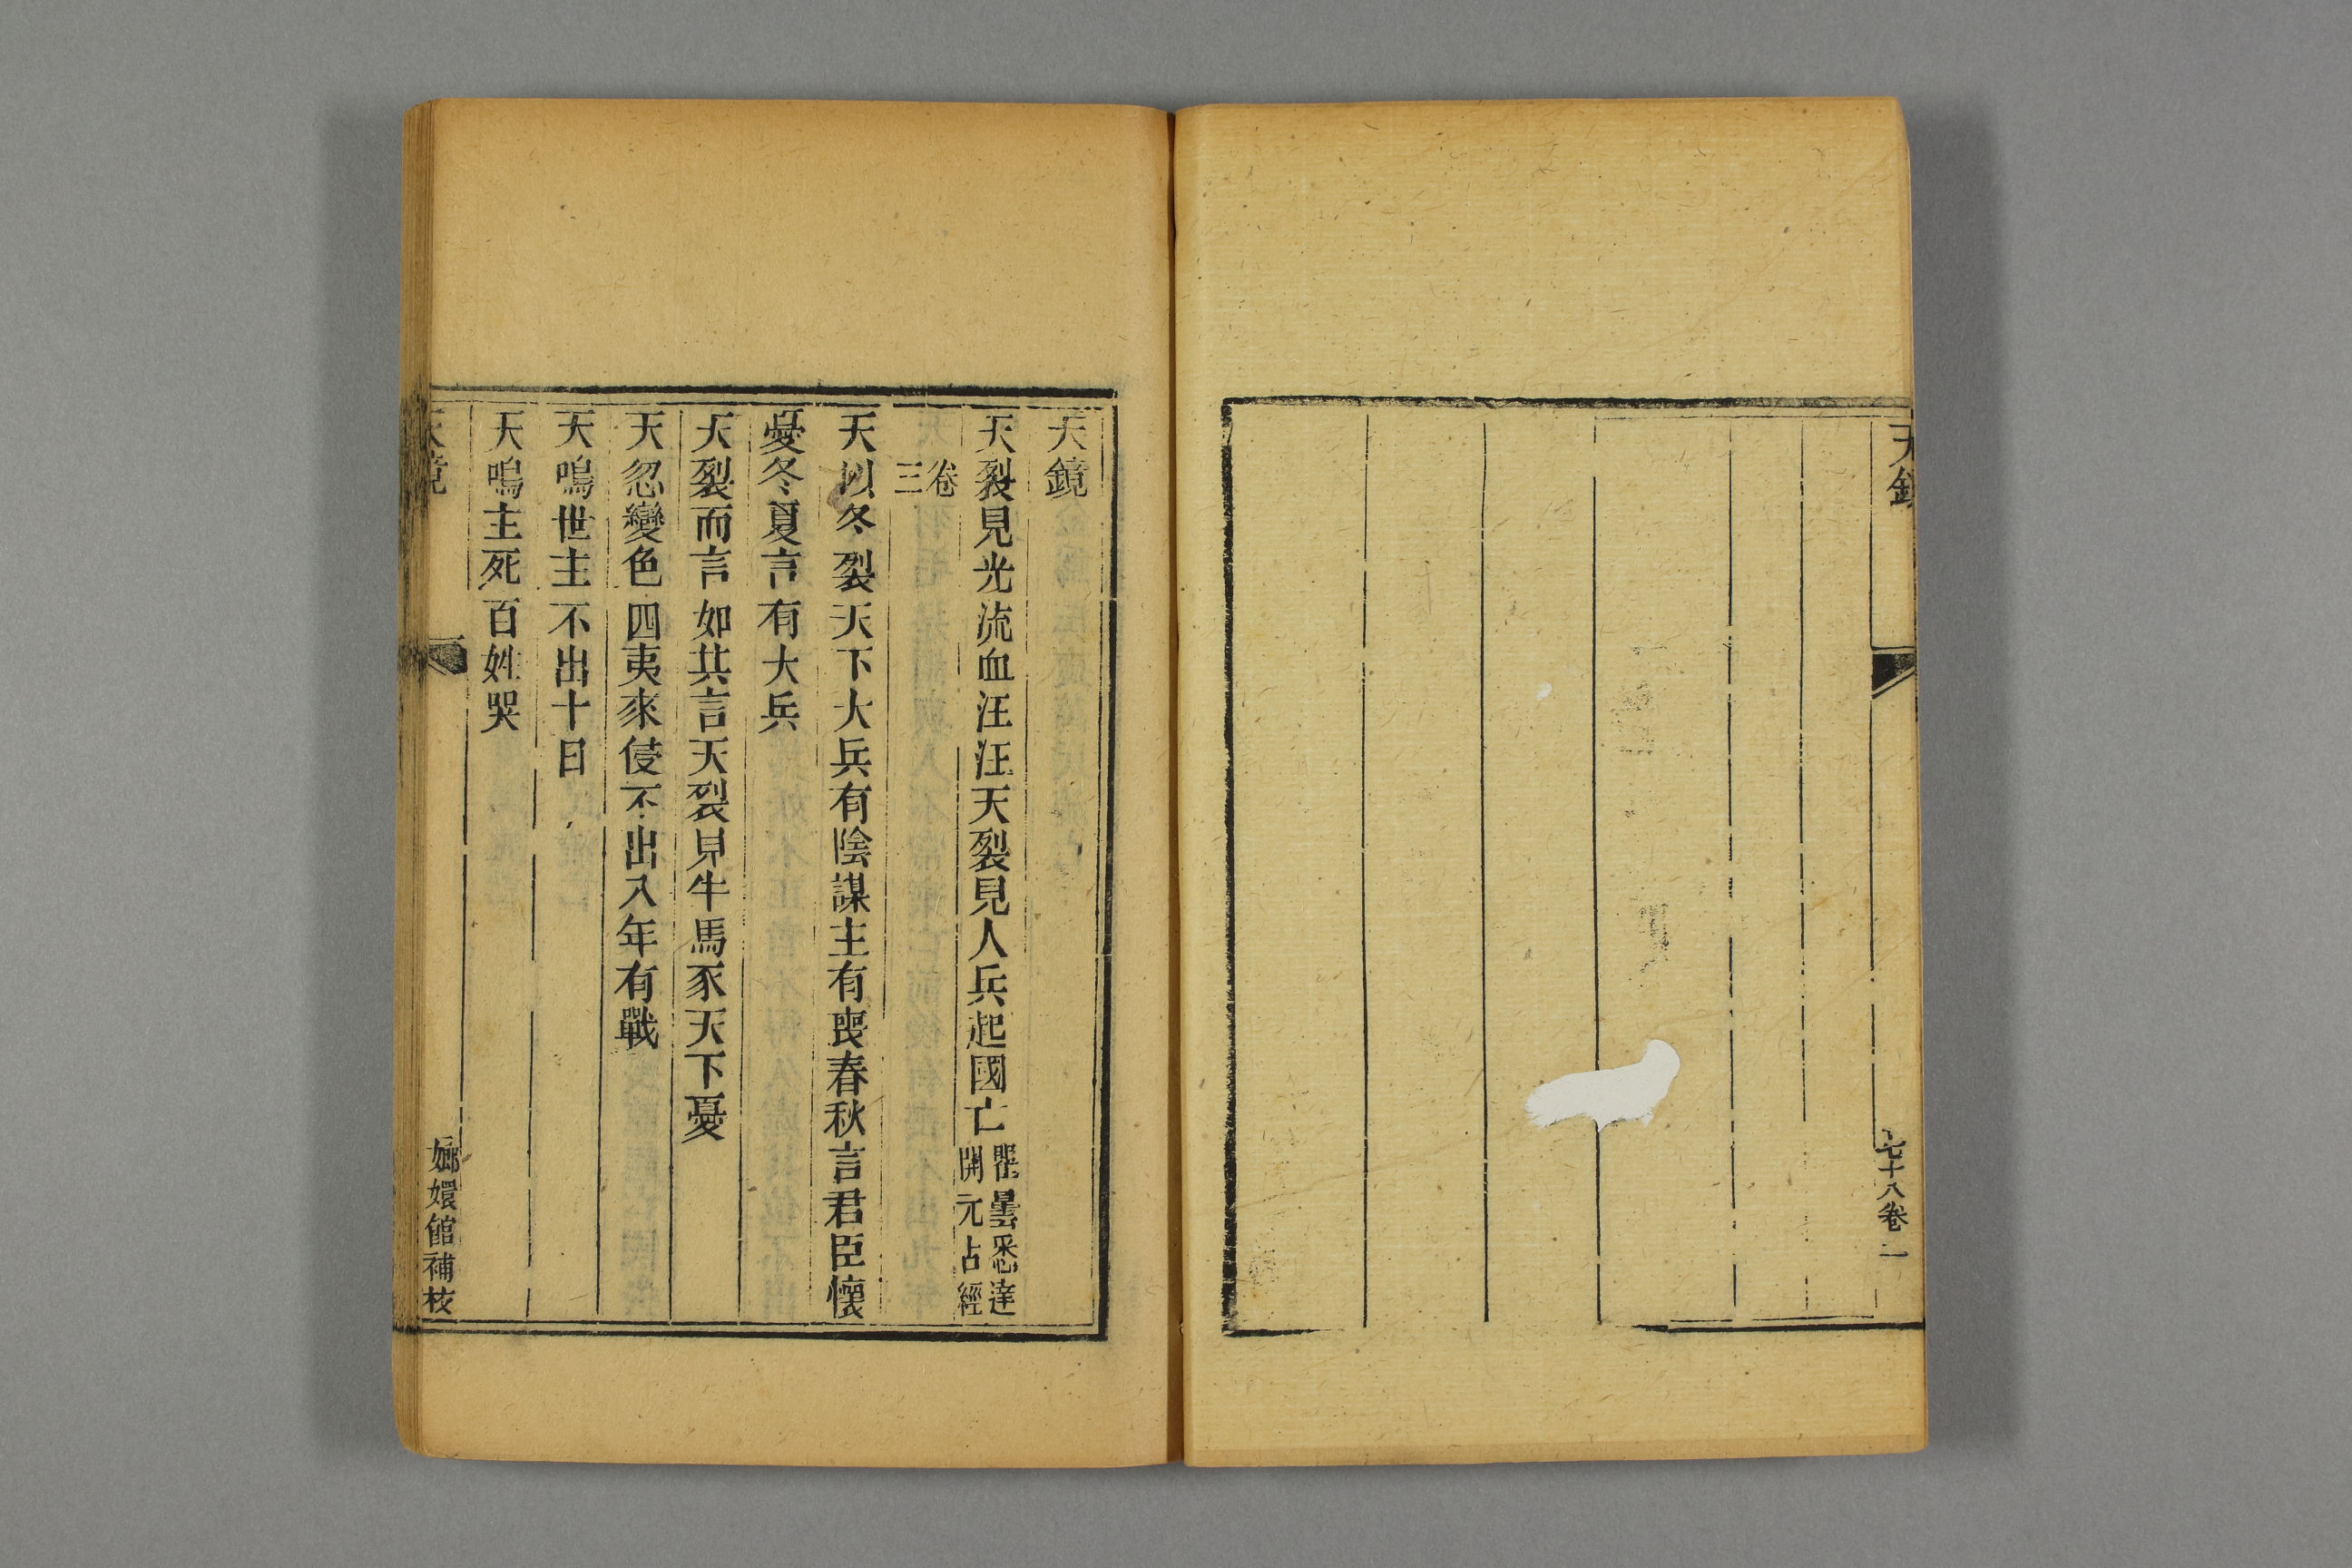 天鏡
七十八卷 一
天鏡
天裂見光流血汪汪天裂見人兵起國亡瞿曇悉達開元占經
卷三
天以冬裂天下大兵有陰謀主有喪春秋言君臣懷
憂冬夏言有大兵
天裂而言如其言天裂見牛馬豕天下憂
天忽變色四夷來侵不出八年有戰
天鳴世主不出十日
天鳴主死百姓哭
天鏡
嫏嬛館補校